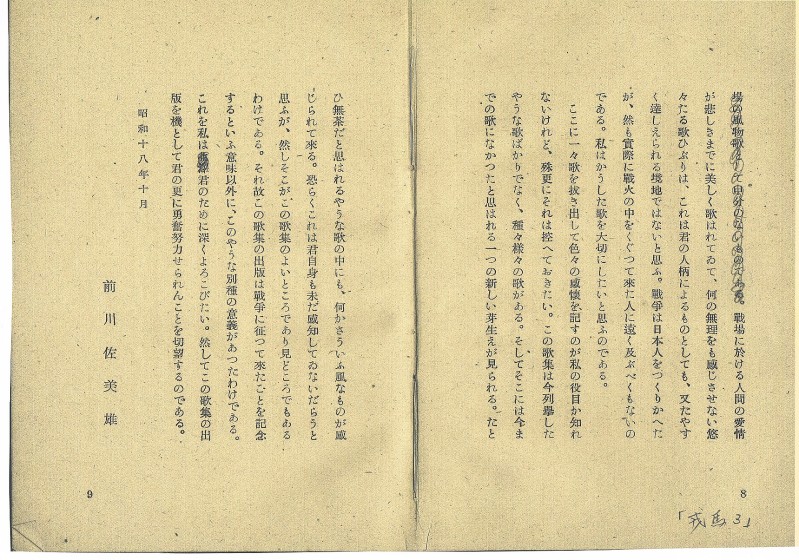 場の風物歌としても申分のないものである。戰場に於ける人間の愛情
が悲しきまでに美しく歌はれてゐて、何の無理をも感じさせない悠
々たる歌ひぶりは、これは君の人柄によるものとしても、又たやす
く達しえられる境地ではないと思ふ。戰爭は日本人をつくりかへた
が、然も實際に戰火の中をくぐつて來た人に遠く及ぶべくもないの
である。私はかうした歌を大切にしたいと思ふのである。
ここに一々歌を拔き出して色々の感懷を記すのが私の役目か知れ
ないけれど、殊更にそれは控へておきたい。この歌集は今列擧した
やうな歌ばかりでなく、種々樣々の歌がある。そしてそこには今ま
での歌になかつたと思はれる一つの新しい芽生えが見られる。たと
8
「戎馬3」
ひ無茶だと思はれるやうな歌の中にも、何かさういふ風なものが感
じられて來る。恐らくこれは君自身も未だ感知してゐないだらうと
思ふが、然しそこがこの歌集のよいところであり見どころでもある
わけである。それ故この歌集の出版は戰爭に征つて來たことを記念
するといふ意味以外に、このやうな別種の意義があつたわけである。
これを私は君のために深くよろこびたい。然してこの歌集の出
版を機として君の更に勇奮努力せられんことを切望するのである。
昭和十八年十月
前川佐美雄
9